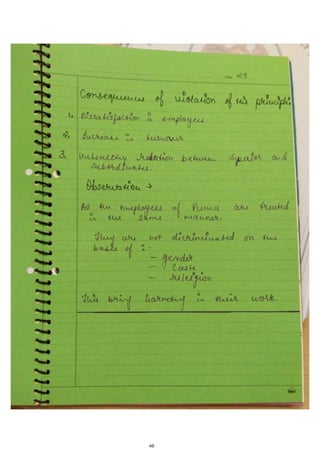 Consequences of violation of this principle
1. Dissatisfaction in employees
2. Increase in turnover
3. Unhealthy relation between superior and
subordinates.
Observation →
All the employees of Puma are treated
in the same manner.
They are not discriminated on the
basis of :-
- gender
- Caste
- religion
This bring harmony in their work.
46